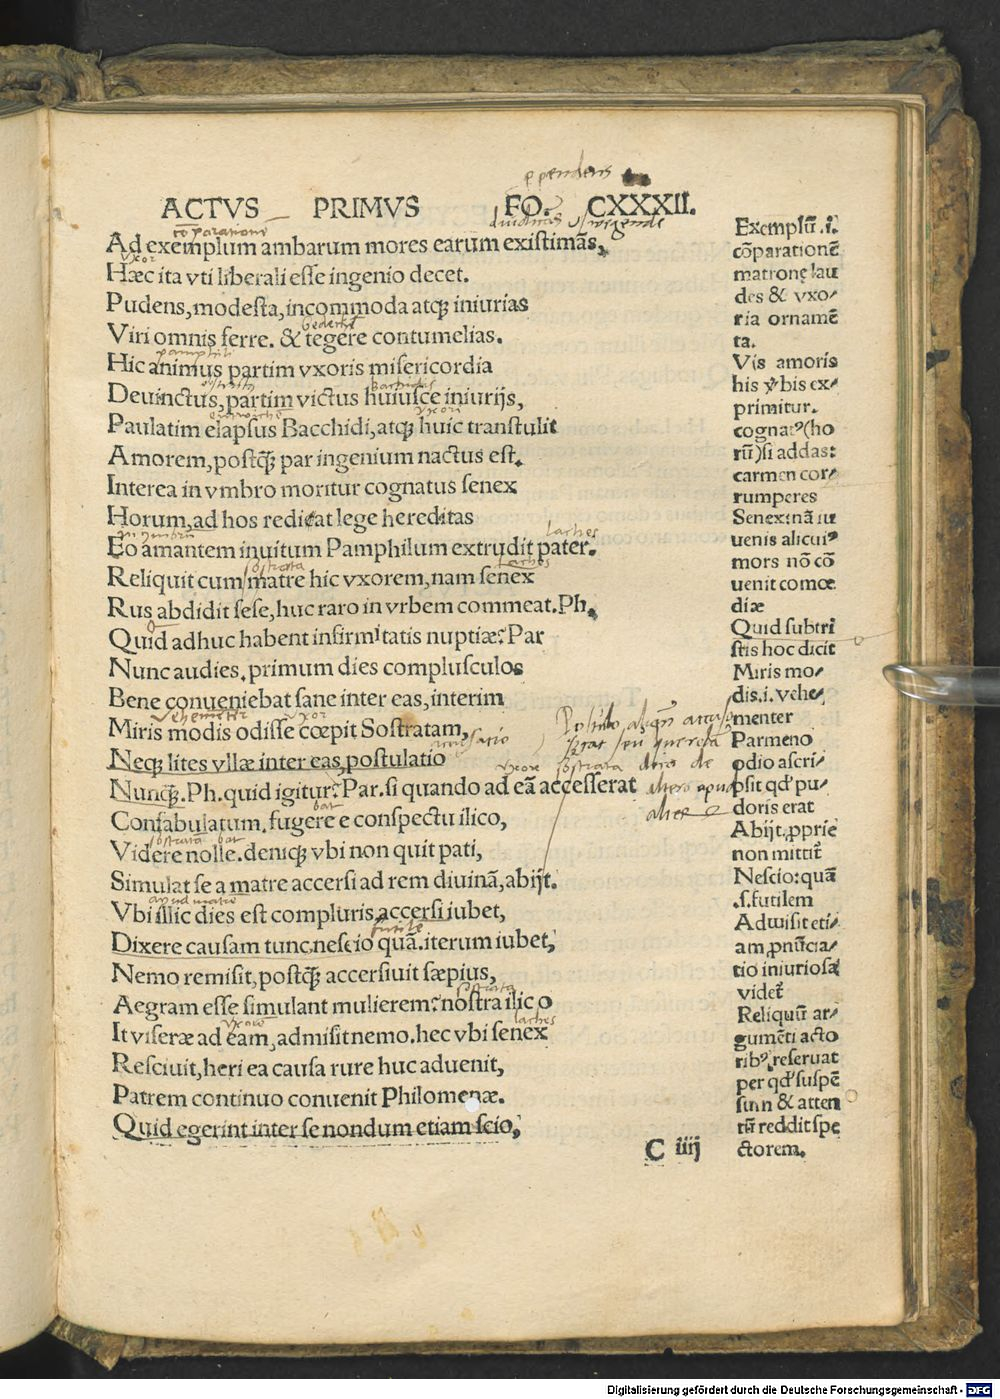 ppendens
ACTVS PRIMVS FO. CXXXII.
cōparatione
Ad exemplum ambarum mores earum existimãs,
vxor
Hæc ita vti liberali esse ingenio decet.
Pudens, modesta, incommoda atq; iniurias
Viri omnis ferre. & tegere contumelias.
pamphili
Hic animus partim vxoris misericordia
Deuinctus, partim victus huiusce iniurijs,
vxori
Paulatim elapsus Bacchidi, atq; huic transtulit
Amorem, postq̃; par ingenium nactus est.
Interea in vmbro moritur cognatus senex
Horum, ad hos redicat lege hereditas
laches
Eo amantem inuitum Pamphilum extrudit pater.
sostrata laches
Reliquit cum matre hic vxorem, nam senex
Rus abdidit sese, huc raro in vrbem commeat. Ph.
Quid adhuc habent infirmitatis nuptiæ? Par
Nunc audies. primum dies complusculos
Bene conueniebat sane inter eas, interim
vehemēter vxor
Miris modis odisse cœpit Sostratam,
Neq; lites vllæ inter eas, postulatio
vxore sostrata
Nunq̃;. Ph. quid igitur? Par. si quando ad eã accesserat
bat
Confabulatum. fugere e conspectu ilico,
sostratã bat
Videre nolle. deniq; vbi non quit pati,
Simulat se a matre accersi ad rem diuinã, abijt.
apud matrē
Vbi illic dies est compluris, accersi iubet,
futilē
Dixere causam tunc nescio quã. iterum iubet,
Nemo remisit, postq̃; accersiuit sæpius,
sostrata
Aegram esse simulant mulierem: nostra ilico
vxorē laches
It viseræ ad eam, admisit nemo. hec vbi senex
Resciuit, heri ea causa rure huc aduenit,
Patrem continuo conuenit Philomenæ.
Quid egerint inter se nondum etiam scio,
C iiij
Exemplũ .i.
cõparationẽ
matronę lau
des & vxo/
ria ornamẽ
ta.
Vis amoris
his v̉bis ex/
primitur.
cognatꝰ (ho
rũ) si addas:
carmen cor/
rumperes
Senex inã iu
uenis alicuiꝰ
mors nõ cõ
uenit comœ
diæ
Quid subtri
stis hoc dicit
Miris mo/
dis .i. vehe/
menter
Parmeno
odio ascri/
psit qđ pu/
doris erat
Abijt, ꝓprie
non mittit̃
Nescio: quã
.s. futilem
Aduisit eti/
am, ꝓnũcia/
tio iniuriosa
videt̃
Reliquũ ar/
gumẽti acto
ribꝰ, reseruat
per qđ suspẽ
sum & atten
tũ reddit spe
ctorem.
Digitalisierung gefördert durch die Deutsche Forschungsgemeinschaft - DFG